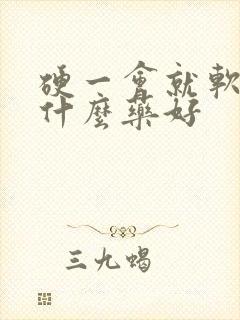 硬一會就軟
什麼藥好
三九蝎